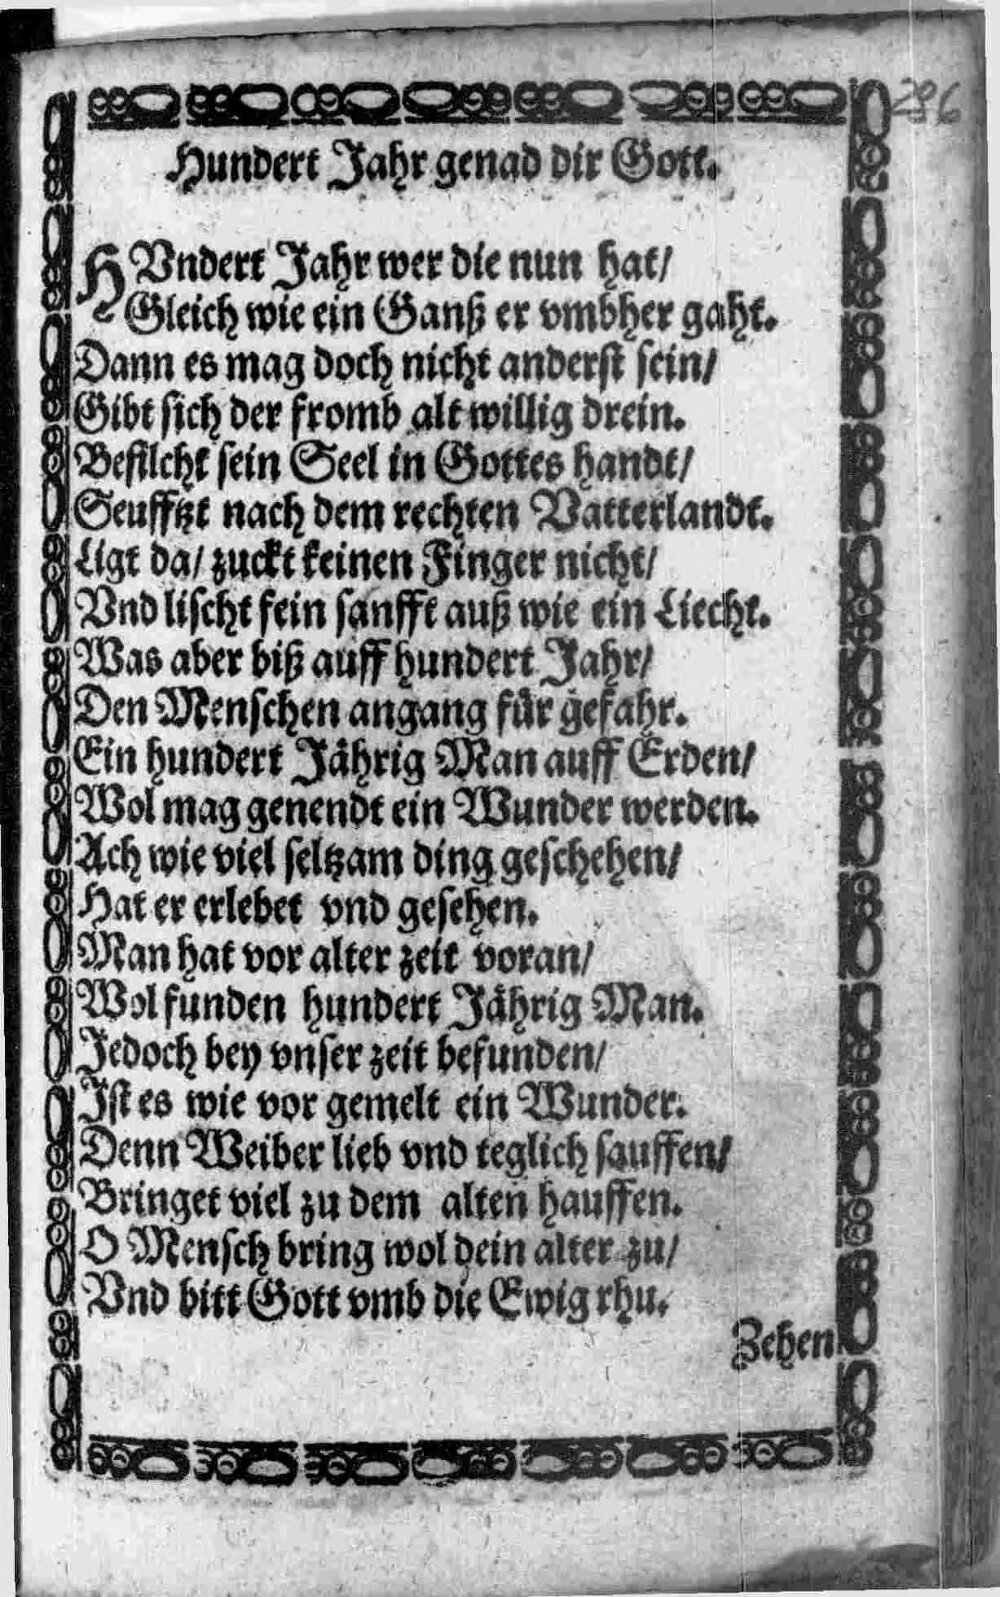 286
Hundert Jahr genad dir Gott.
HVndert Jahr wer die nun hat/
Gleich wie ein Ganß er vmbher gaht.
Dann es mag doch nicht anderst sein/
Gibt sich der fromb alt willig drein.
Befilcht sein Seel in Gottes handt/
Seufftzt nach dem rechten Vatterlandt.
Ligt da/ zuckt keinen Finger nicht/
Vnd lischt fein sanfft auß wie ein Liecht.
Was aber biß auff hundert Jahr/
Den Menschen angang für gefahr.
Ein hundert Jährig Man auff Erden/
Wol mag genendt ein Wunder werden.
Ach wie viel seltzam ding geschehen/
Hat er erlebet vnd gesehen.
Man hat vor alter zeit voran/
Wol funden hundert Jährig Man.
Jedoch bey vnser zeit befunden/
Ist es wie vor gemelt ein Wunder.
Denn Weiber lieb vnd teglich sauffen/
Bringet viel zu dem alten hauffen.
O Mensch bring wol dein alter zu/
Vnd bitt Gott vmb die Ewig rhu.
Zehen